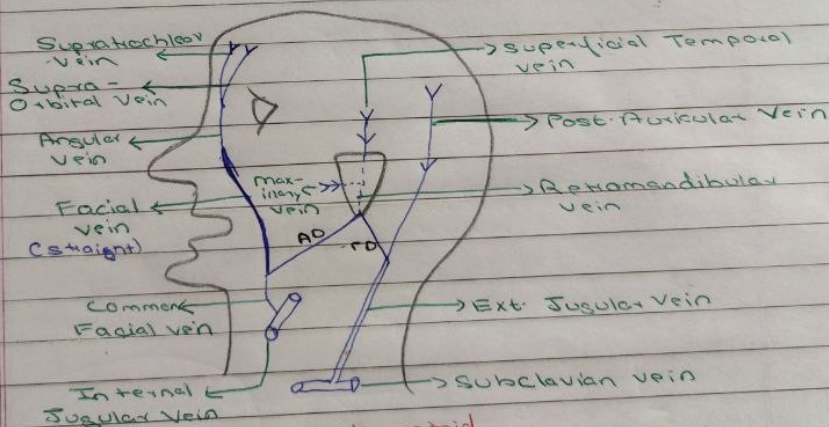 Supratrochlear
vein
Supra-
Orbital Vein
Angular
vein
Facial
vein
(straight)
Common
Facial vein
Internal
Jugular Vein
max-
illary
vein
AD
PD
Superficial Temporal
vein
Post. Auricular Vein
Retromandibular
vein
Ext. Jugular Vein
Subclavian vein